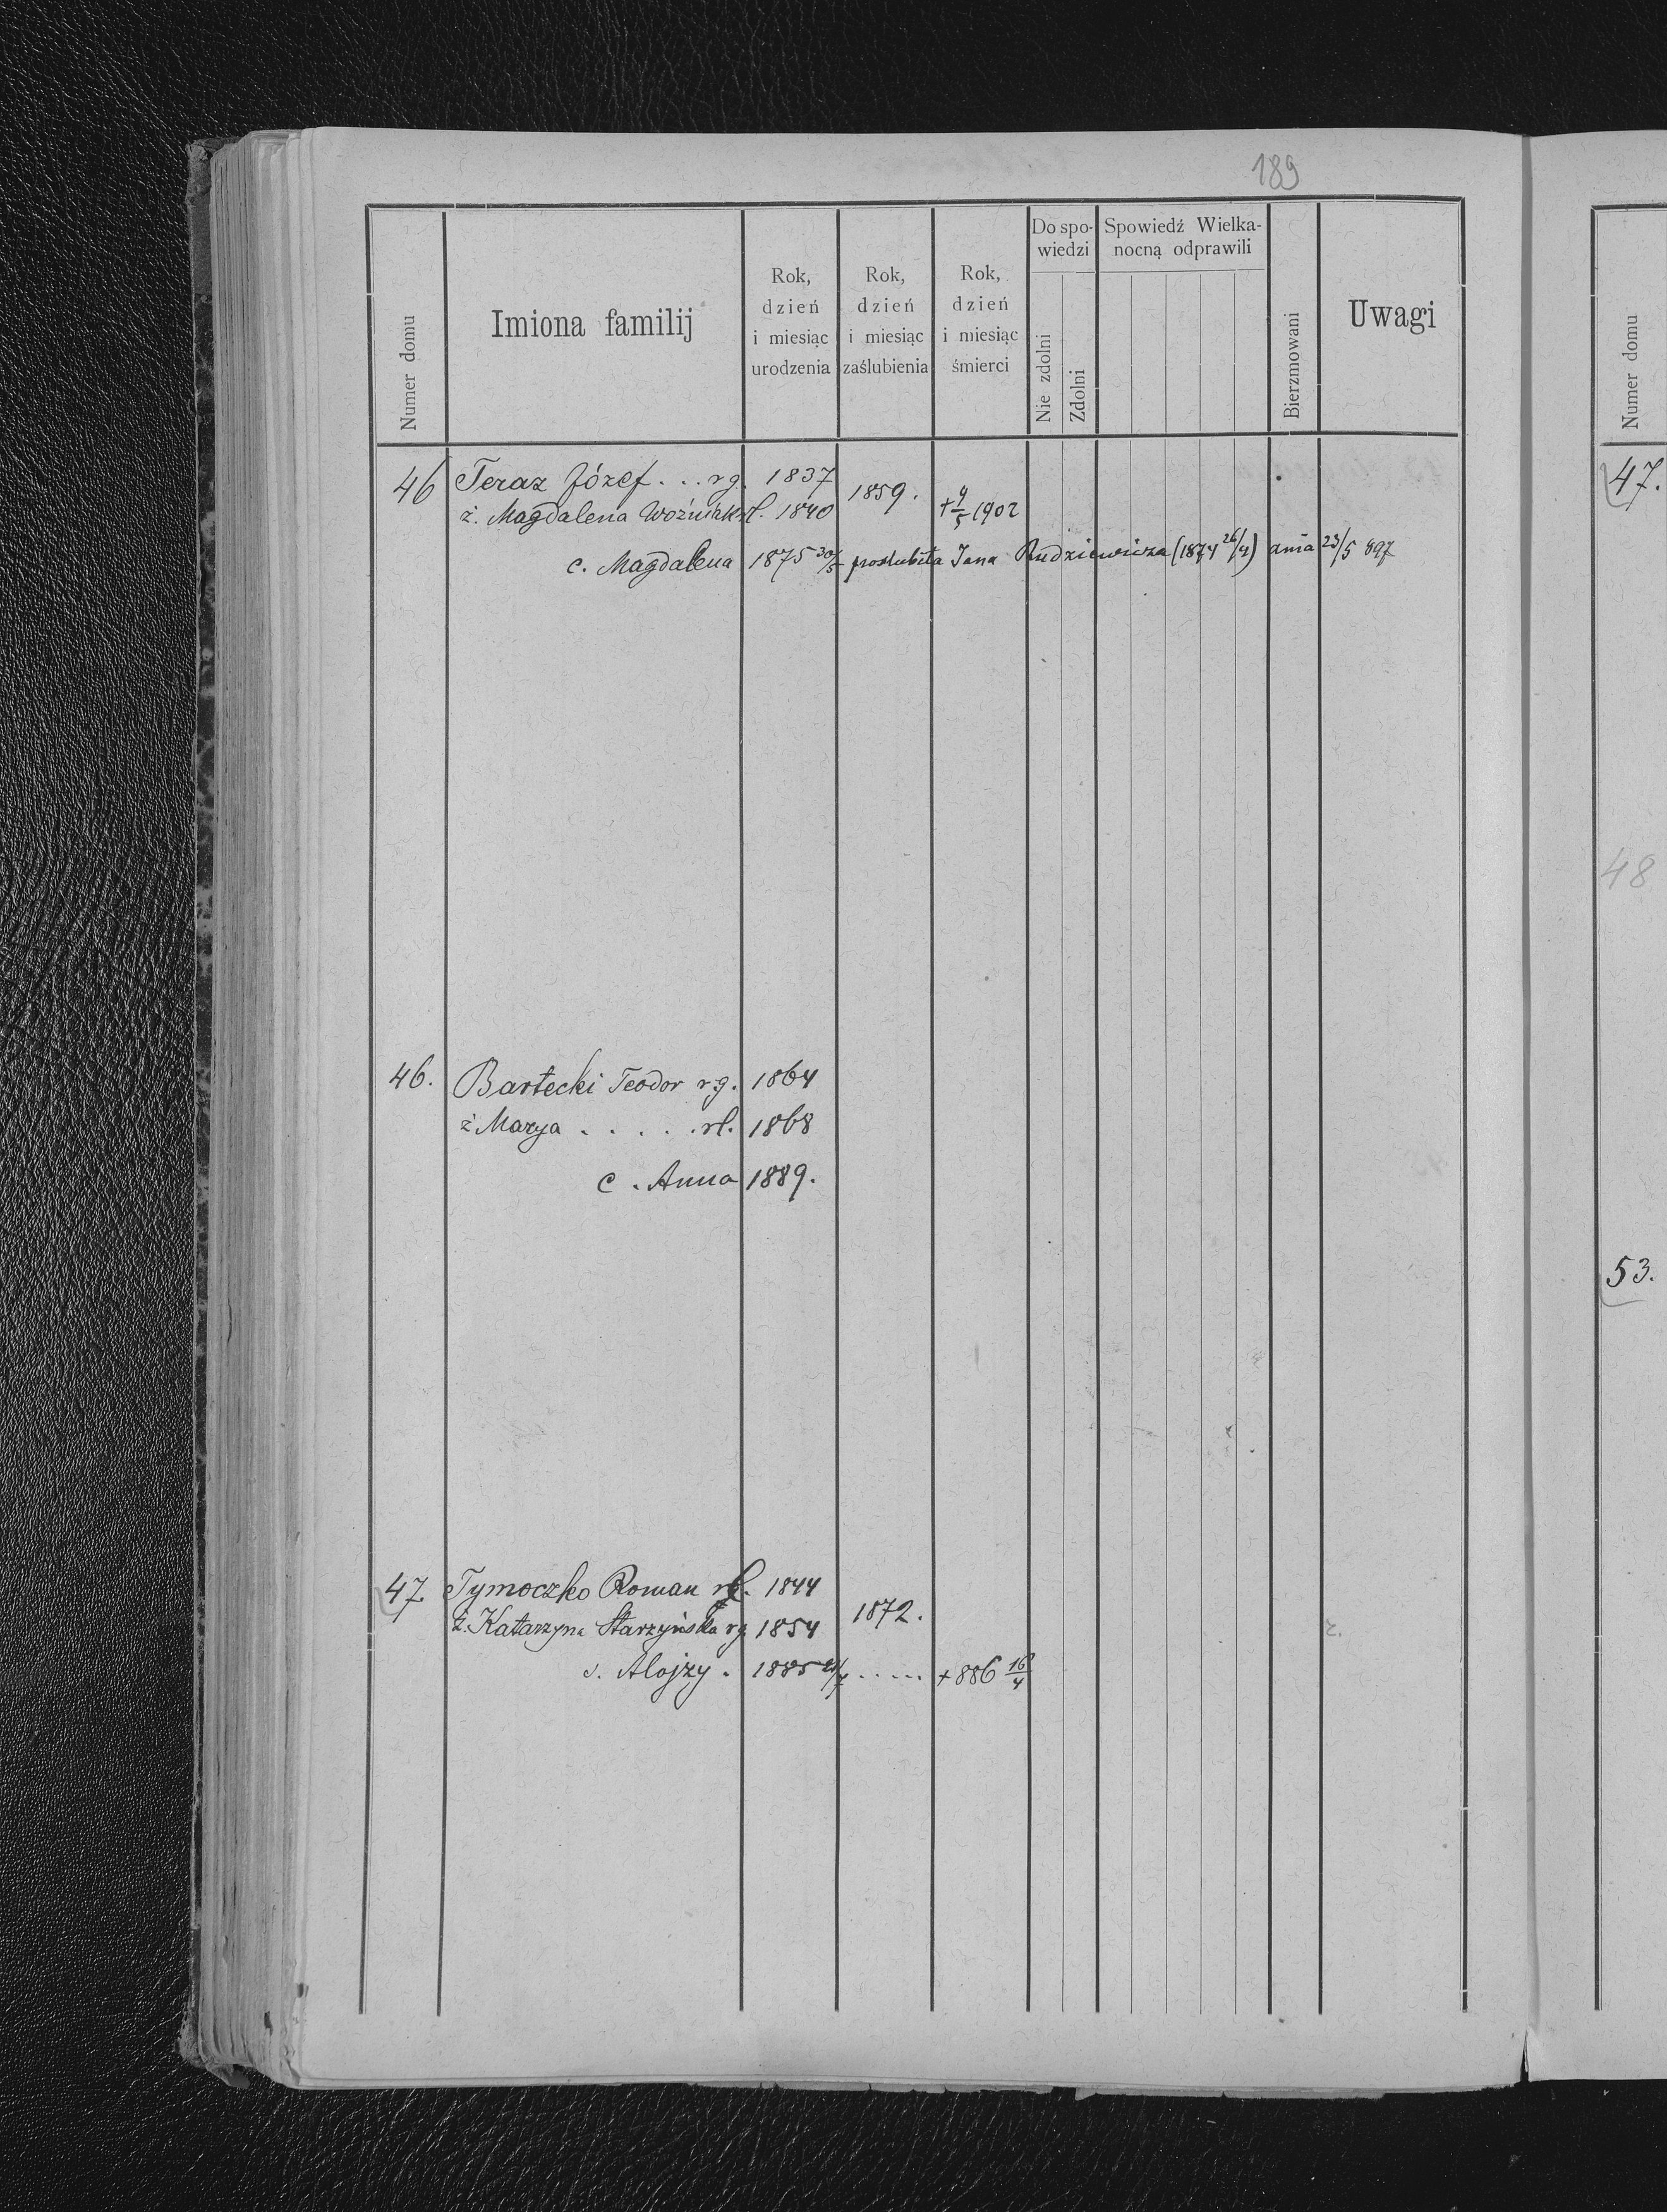 189
Numer domu
Imiona familij
Rok, dzień i miesiąc urodzenia
Rok, dzień i miesiąc zaślubienia
Rok, dzień i miesiąc śmierci
Do spo-
wiedzi
Nie zdolni
Zdolni
Spowiedź Wielka-
nocną odprawili
Bierzmowani
Uwagi
46 Teraz Józef . . . rg. 1837 1859.
ż. Magdalena Woźniak rł. 1840 + 9/5 1902
c. Magdalena 1875 30/5 poślubiła Jana Rudziewicza (1874 26/4) dnia 23/5 897
46. Bartecki Teodor rg. 1864
ż Marya . . . . . rł. 1868
c. Anna 1889.
47 Tymoczko Roman 1844 1872.
ż. Katarzyna Starzyńska rg 1854
s. Alojzy . 1885 . . . . . + 886 16/4
Numer domu
47.
48
53.